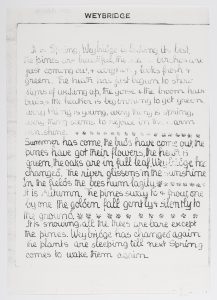 WEYBRIDGE
It is Spring, Weybridge is looking its best,
the pines are beautiful, the birches are
just coming out, everything looks fresh &
green. The heath has just begun to show
signs of waking up, the gorse & the broom have
buds & the heather is beginning to get green
every thing is young, every thing is spring,
every thing seems to rejoice in the warm
sunshine.
Summer has come the buds have come out the
pines have got their flowers, the heath is
green, the oaks are in full leaf Weybridge has
changed. The river glistens in the sunshine
In the fields the bees hum lazily
It is Autumn, the pines sway to & fro, one
by one the golden fall gently & silently to
the ground.
It is snowing, all the trees are bare except
the pines. Weybridge has changed again
the plants are sleeping till next Spring
comes to wake them again.